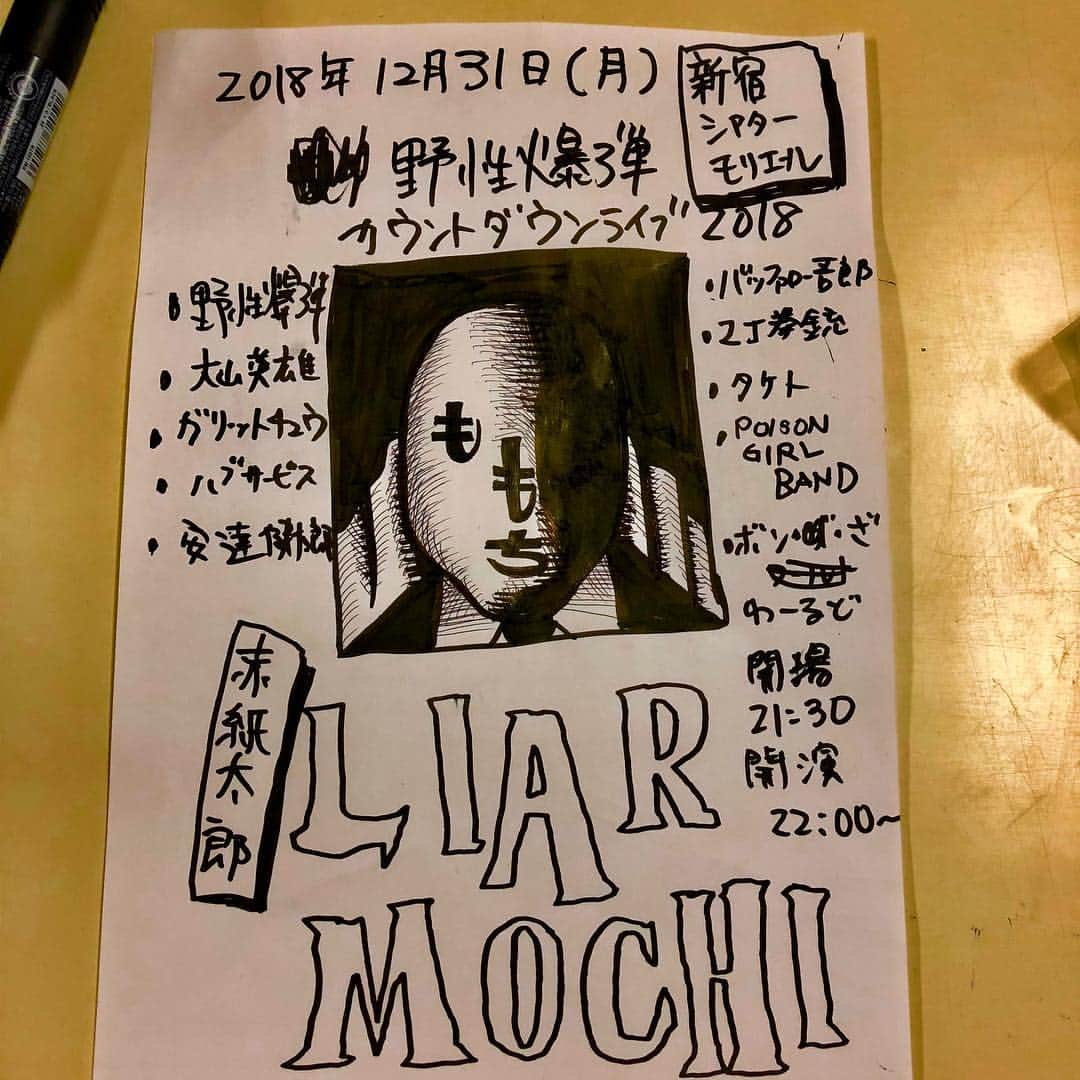 2018年 12月31日(月)
新宿
シアター
モリエール
野性爆弾
カウントダウンライブ 2018
・野性爆弾
・大山英雄
・ガリットチュウ
・ハブサービス
・安達健太郎
・バッファロー吾郎
・2丁拳銃
・タケト
・POISON
GIRL
BAND
・ボン・ざ・
わーるど
開場
21:30
開演
22:00~
も
も
ち
赤紙太郎
LIAR
MOCHI